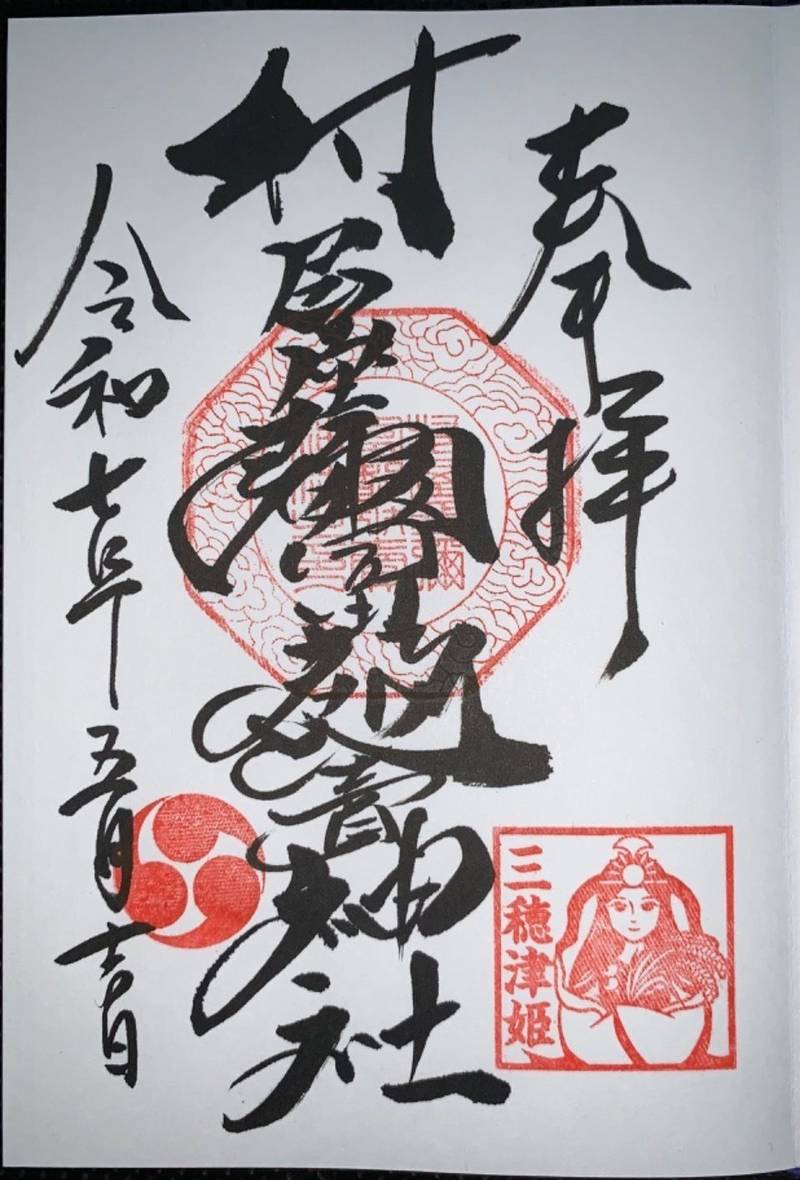 奉拝
村屋坐彌冨都比賣神社
令和七年五月 日
三穂津姫